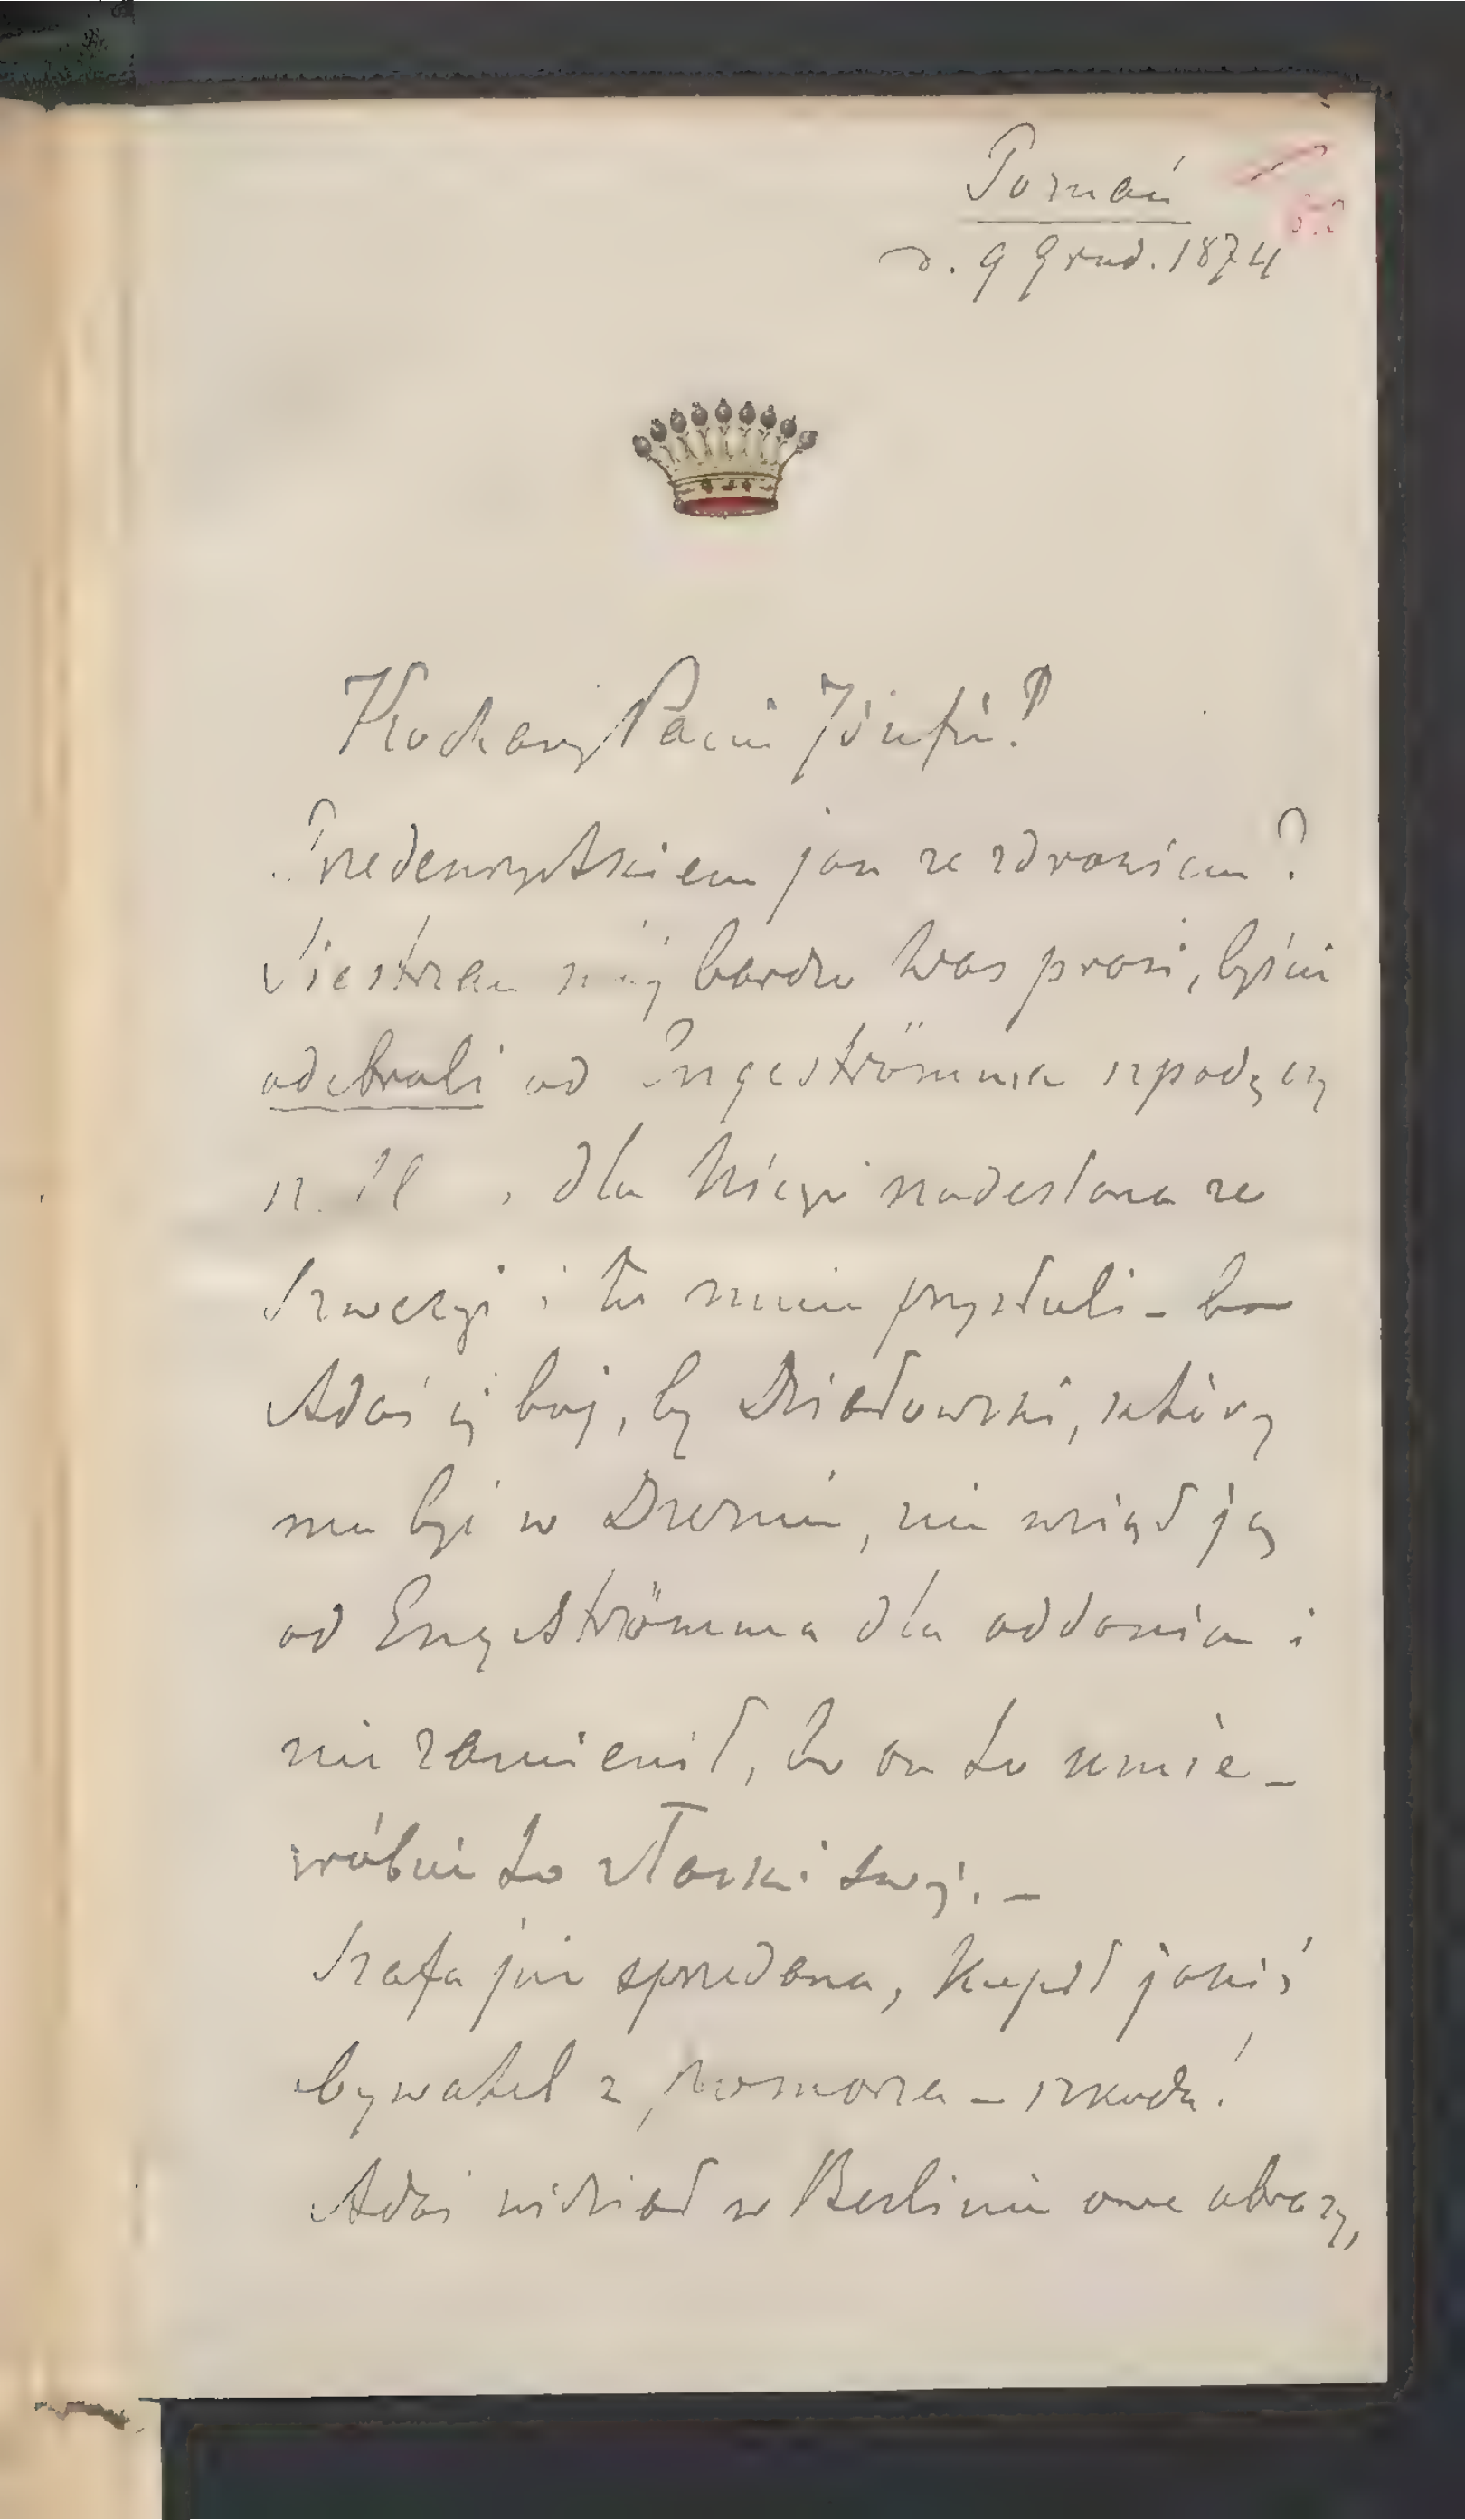 Poznań
d. 9 Grud. 1874
Kochany Panie Józefie!
Przedewszystkiem jak ze zdrowiem?
Siostrzan mój bardzo Was prosi, byście
odebrali od Engeströmma szpadę czy
dla Niego nadesłana ze
Szwecyi i tu mnie przysłali – bo
Adaś się boi, by Działowski, który
ma być w Dreznie, nie wziął ją
od Engeströmma dla oddania i
nie zamienił, bo on to umie –
zróbcie to z łaski swej. –
Szafa już sprzedana, kupił jakiś
obywatel z Pomorza – szkoda!
Adaś widział w Berlinie owe obrazy,